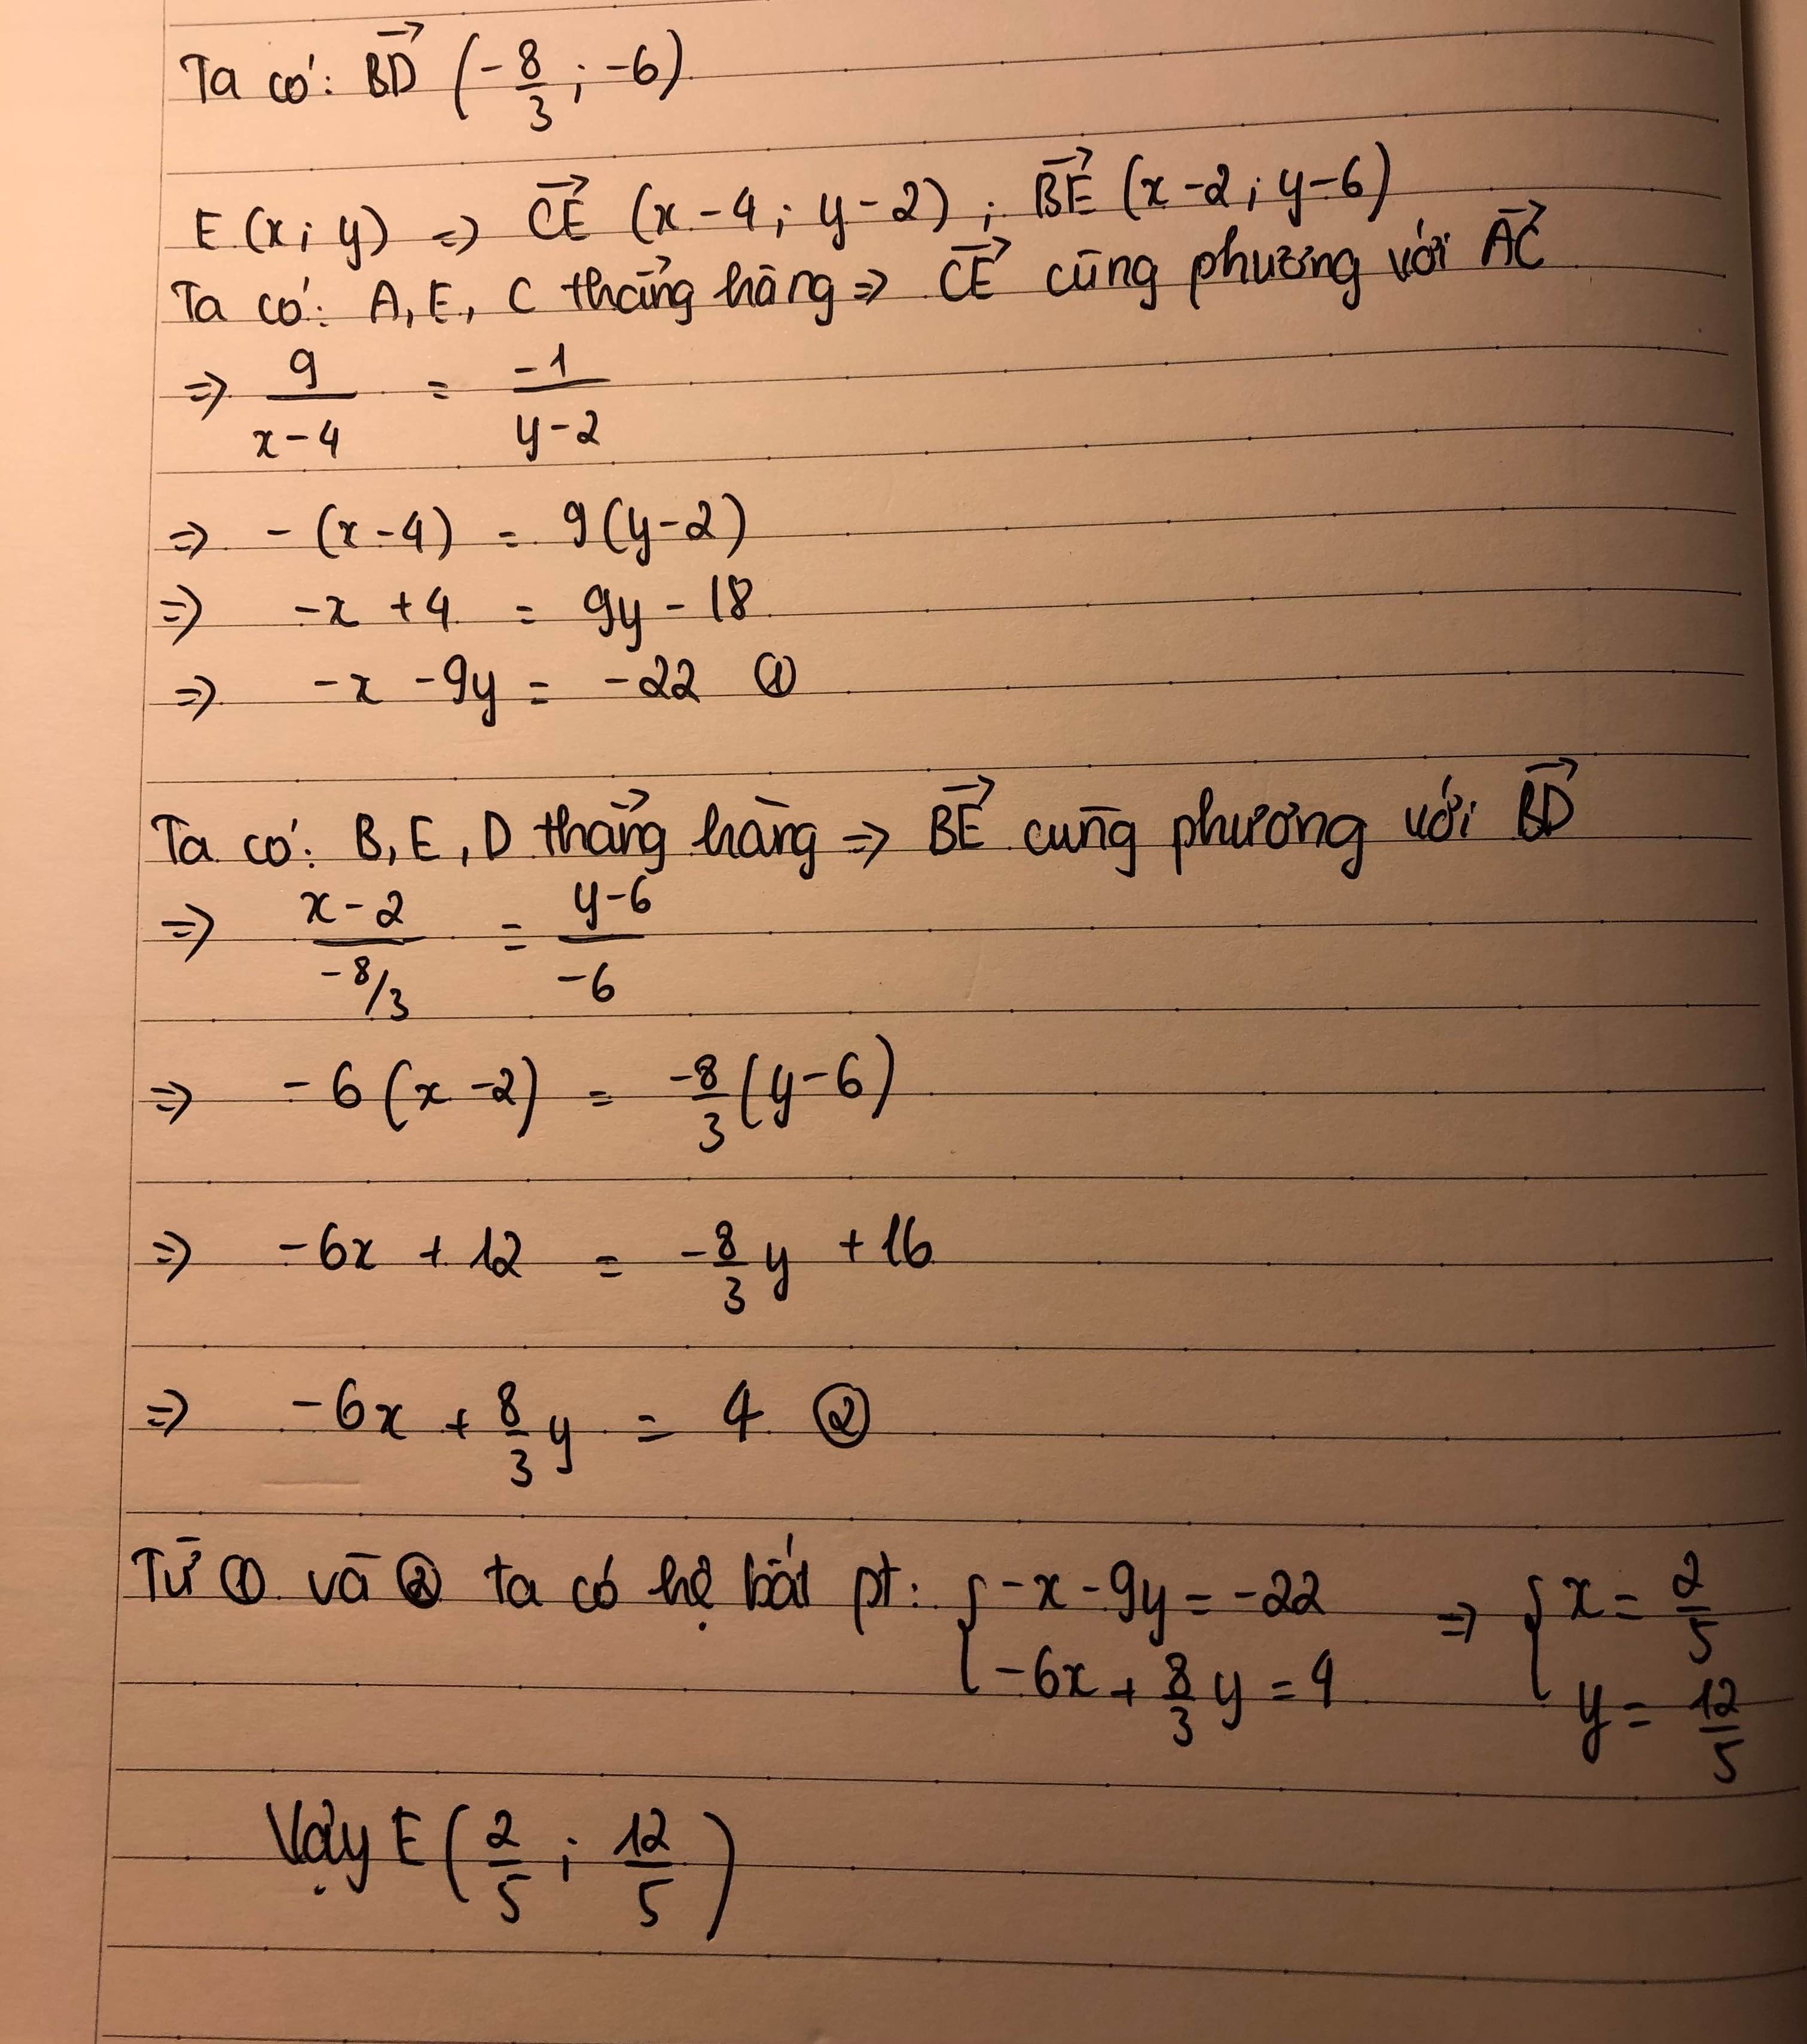 Ta có: BD→ (-8/3 ; -6)
E (x; y) => CE→ (x - 4 ; y - 2) ; BE→ (x - 2 ; y - 6)
Ta có: A, E, C thẳng hàng => CE→ cùng phương với AC→
=> 9/(x - 4) = -1/(y - 2)
=> - (x - 4) = 9(y - 2)
=> -x + 4 = 9y - 18
=> -x - 9y = -22 ①
Ta có: B, E, D thẳng hàng => BE→ cùng phương với BD→
=> (x - 2)/(-8/3) = (y - 6)/(-6)
=> - 6 (x - 2) = -8/3 (y - 6)
=> -6x + 12 = -8/3 y + 16
=> -6x + 8/3 y = 4 ②
Từ ① và ② ta có hệ bất pt: { -x - 9y = -22 => { x = 2/5
-6x + 8/3 y = 4 y = 12/5
Vậy E ( 2/5 ; 12/5 )